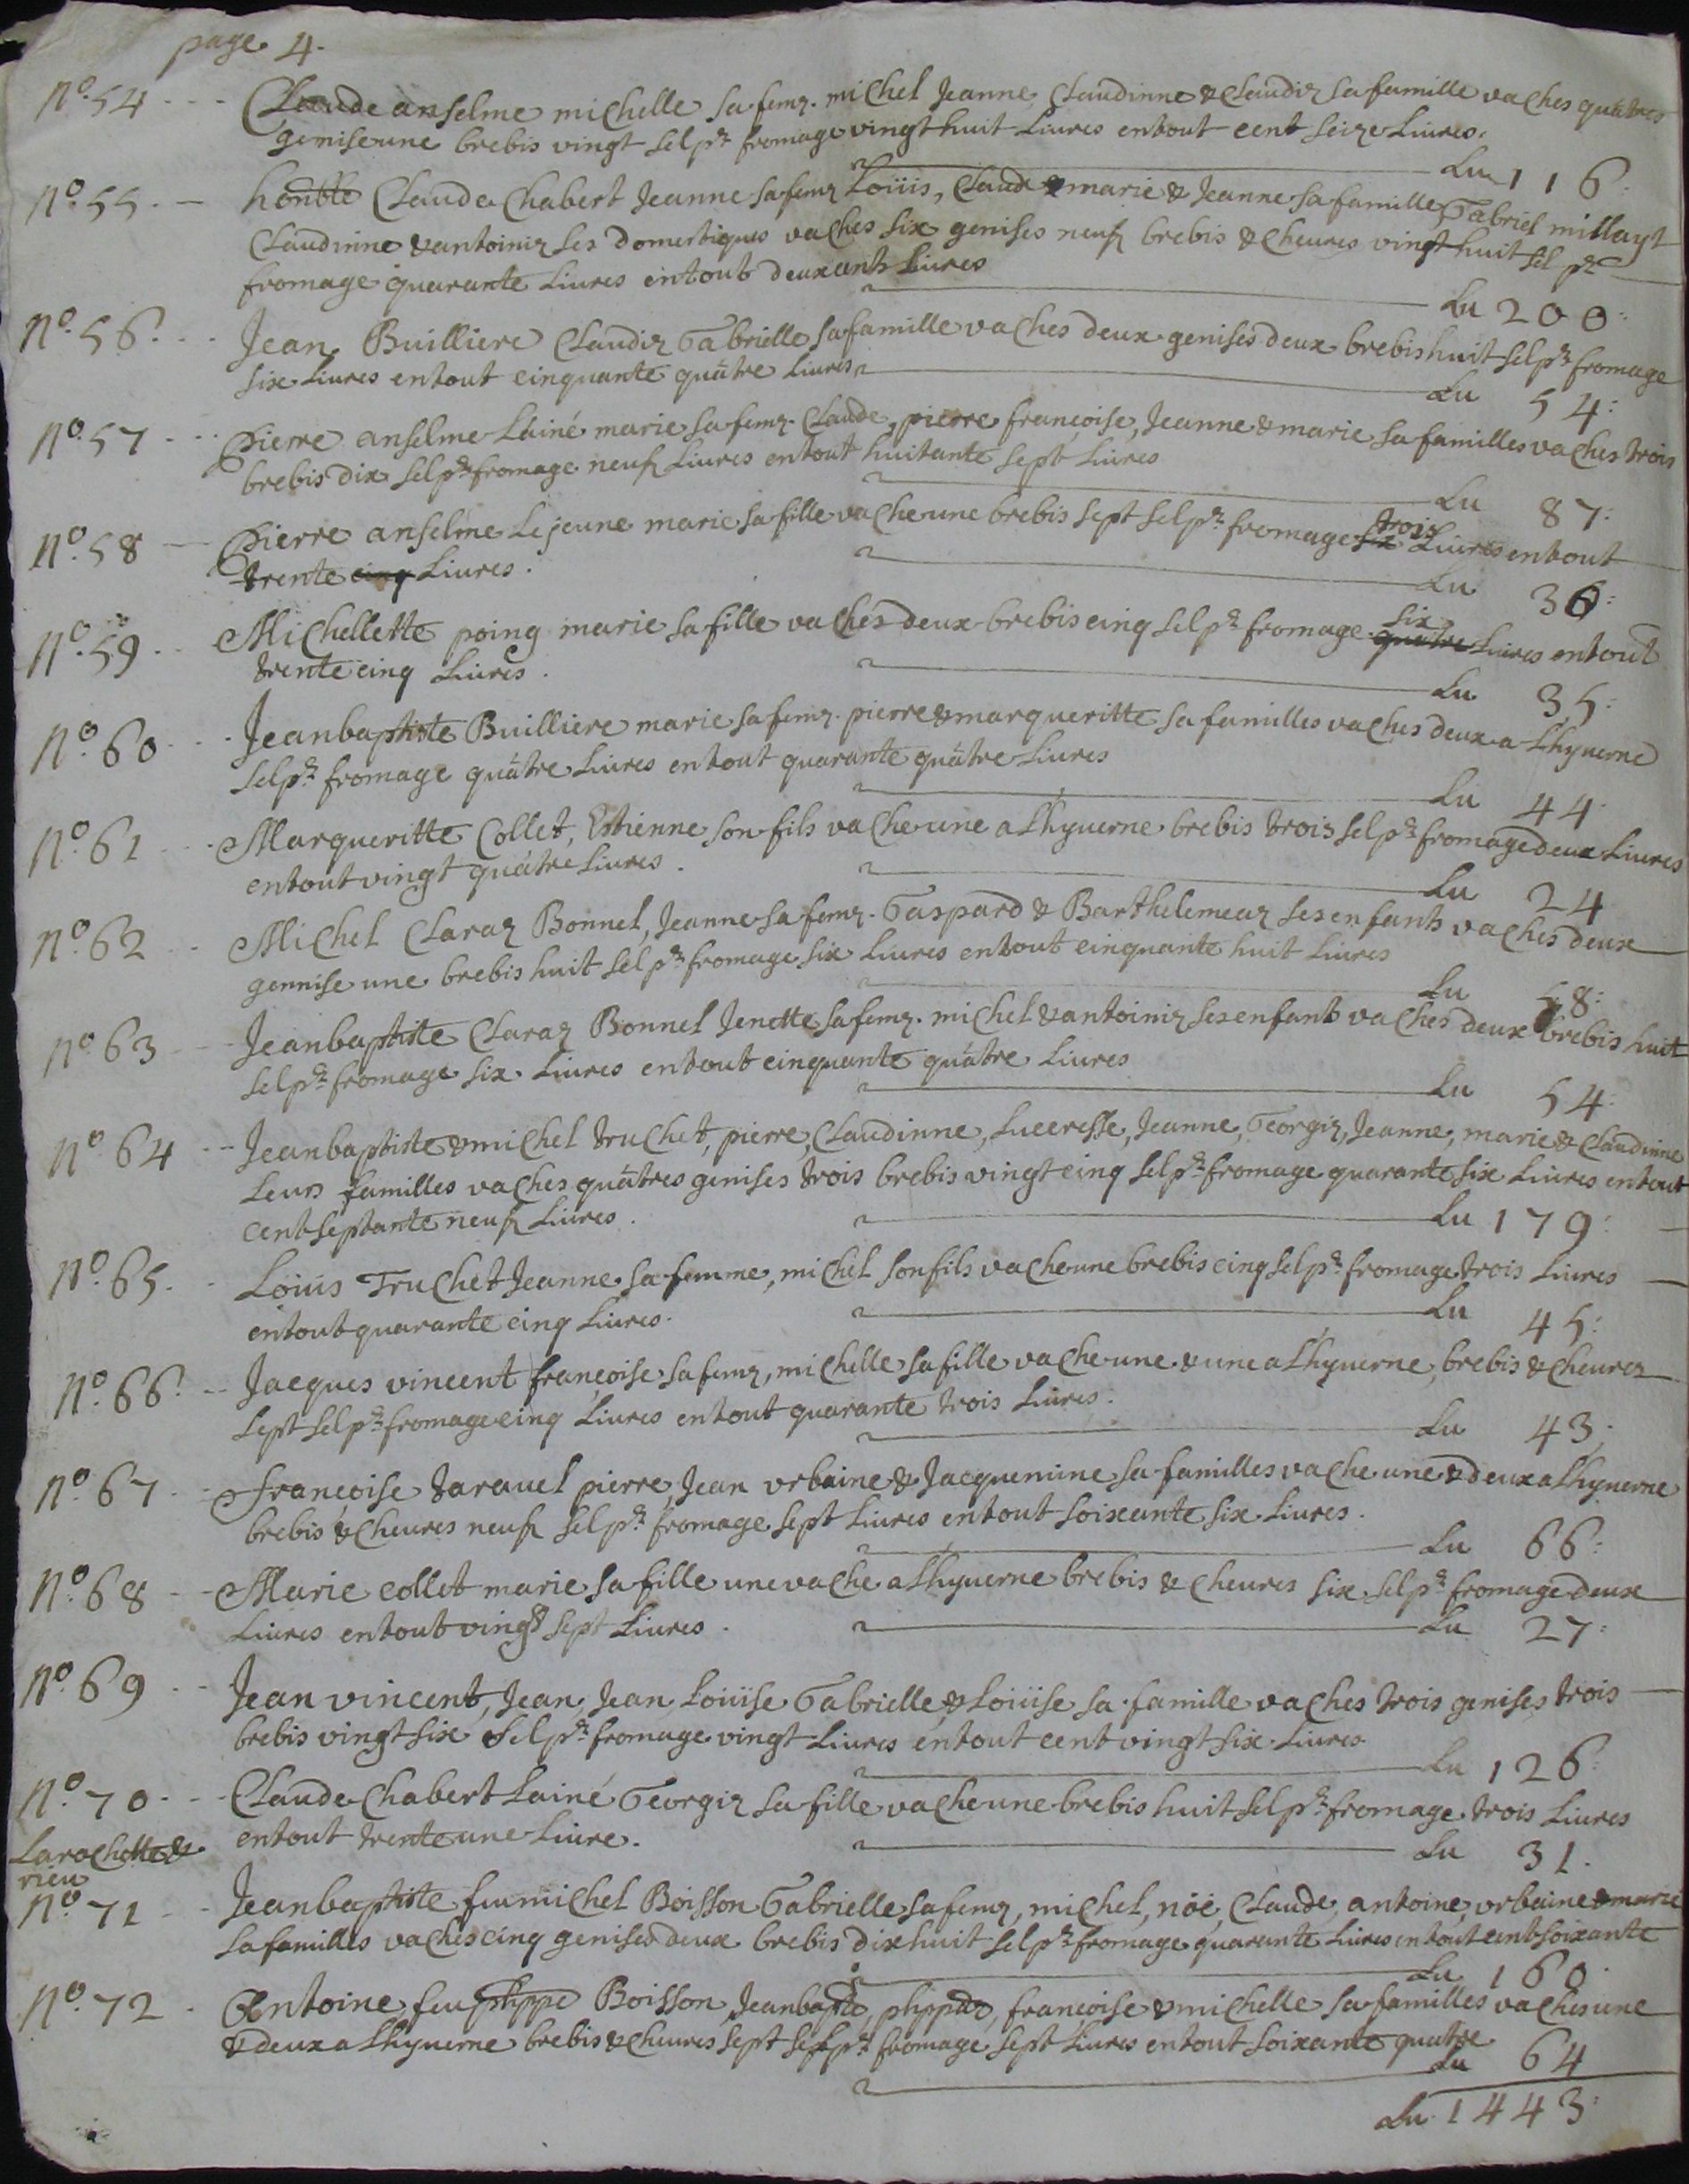 page 4.
N.º 54 Claude anselme michelle sa femᵉ. michel Jeanne, Claudinne & Claudiᵉ sa famille vaches quatres
genise une brebis vingt sel pʳ fromage vingt huit Liures entout cent seize Liures.
Lu 116:
N.º 55. honble Claude Chabert Jeanne sa femᵉ Loüis, Claude & marie & Jeanne sa famille, Gabriel millayt
Claudinne & antoiniᵉ ses domestiques vaches six genises neuf brebis & Cheures vingt huit sel pʳ
fromage quarante Liures entout deux cents Liures
Lu 200:
N.º 56. Jean Builliere Claudiᵉ Gabrielle sa famille vaches deux genises deux brebis huit sel pʳ fromage
six Liures entout cinquante quatre Liures
Lu 54:
N.º 57 Pierre anselme Lainé marie sa femᵉ. Claude, pierre françoise, Jeanne & marie sa familles vaches trois
brebis dix sel pʳ fromage neuf Liures entout huitante sept Liures
Lu 87:
N.º 58 Pierre anselme Le jeune marie sa fille vache une brebis sept sel pʳ fromage six trois Liures entout
trente cinq Liures.
Lu 30:
N.º 59 Michellette poing marie sa fille vaches deux brebis cinq sel pʳ fromage quatre six Liures entout
trente cinq Liures.
Lu 35:
N.º 60 Jeanbaptiste Builliere marie sa femᵉ. pierre & marqueritte sa familles vaches deux a Lhyuerne
sel pʳ fromage quatre Liures entout quarante quatre Liures
Lu 44
N.º 61 Marqueritte Collet, Estienne son fils vache une a Lhyuerne brebis trois sel pʳ fromage deux Liures
entout vingt quatre Liures.
Lu 24
N.º 62 Michel Claraz Bonnel, Jeanne sa femᵉ. Gaspard & Barthelemeaz ses enfants vaches deux
gennise une brebis huit sel pʳ fromage six Liures entout cinquante huit Liures
Lu 58:
N.º 63 Jeanbaptiste Claraz Bonnel Jenette sa femᵉ. michel & antoiniᵉ ses enfants vaches deux brebis huit
sel pʳ fromage six Liures entout cinquante quatre Liures
Lu 54:
N.º 64 Jeanbaptiste & michel truchet, pierre, Claudinne, Luceresse, Jeanne, Georgiᵉ, Jeanne, marie & Claudinne
Leurs familles vaches quatres genises trois brebis vingt cinq sel pʳ fromage quarante six Liures entout
cent septante neuf Liures.
Lu 179:
N.º 65. Loüis Truchet Jeanne sa femme, michel son fils vache une brebis cinq sel pʳ fromage trois Liures
entout quarante cinq Liures.
Lu 45:
N.º 66. Jacques vincent françoise sa femᵉ, michelle sa fille vache une & une a Lhyuerne, brebis & Cheures
sept sel pʳ fromage cinq Liures entout quarante trois Liures.
Lu 43:
N.º 67 Françoise tarauel pierre, Jean vrbaine & Jacquemine sa familles vache une & deux a Lhyuerne
brebis & Cheures neuf sel pʳ fromage sept Liures entout soixante six Liures.
Lu 66:
N.º 68 Marie collet marie sa fille une vache a Lhyuerne brebis & Cheures six sel pʳ fromage deux
Liures entout vingt sept Liures.
Lu 27:
N.º 69 Jean vincent, Jean, Jean, Loüise Gabrielle & Loüise sa famille vaches trois genises trois
brebis vingt six sel pʳ fromage vingt Liures entout cent vingt six Liures.
Lu 126:
N.º 70 Claude Chabert Lainé Georgiᵉ sa fille vache une brebis huit sel pʳ fromage trois Liures
entout trente une Liure.
Lu 31.
Larochette &
rieu
N.º 71 Jeanbaptiste feu michel Boisson Gabrielle sa femᵉ, michel, noë, Claude, antoine, vrbaine & marie
sa familles vaches cinq genises deux brebis dix huit sel pʳ fromage quarante Liures entout cent soixante
Lu 160.
N.º 72 Antoine feu phippe Boisson, Jeanbapte, phippaz, françoise & michelle sa familles vaches une
& deux a Lhyuerne brebis & Cheures sept sel pʳ fromage sept Liures entout soixante quatre
Lu 64
Lu. 1443: